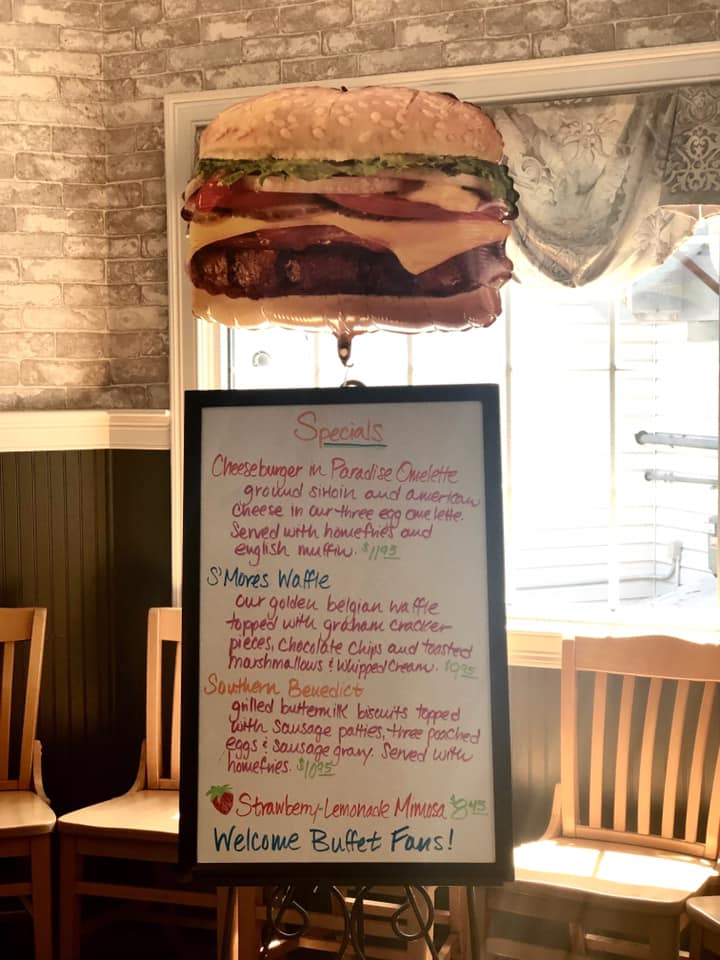 Specials
Cheeseburger in Paradise Omelette
ground sirloin and american
cheese in our three egg omelette.
Served with homefries and
english muffin. $11.95
S'Mores Waffle
our golden belgian waffle
topped with graham cracker
pieces, chocolate chips and toasted
marshmallows & whipped cream.
Southern Benedict
grilled buttermilk biscuits topped
with sausage patties, three poached
eggs & sausage gravy. Served with
homefries. $10.95
Strawberry-Lemonade Mimosa $8.45
Welcome Buffet Fans!